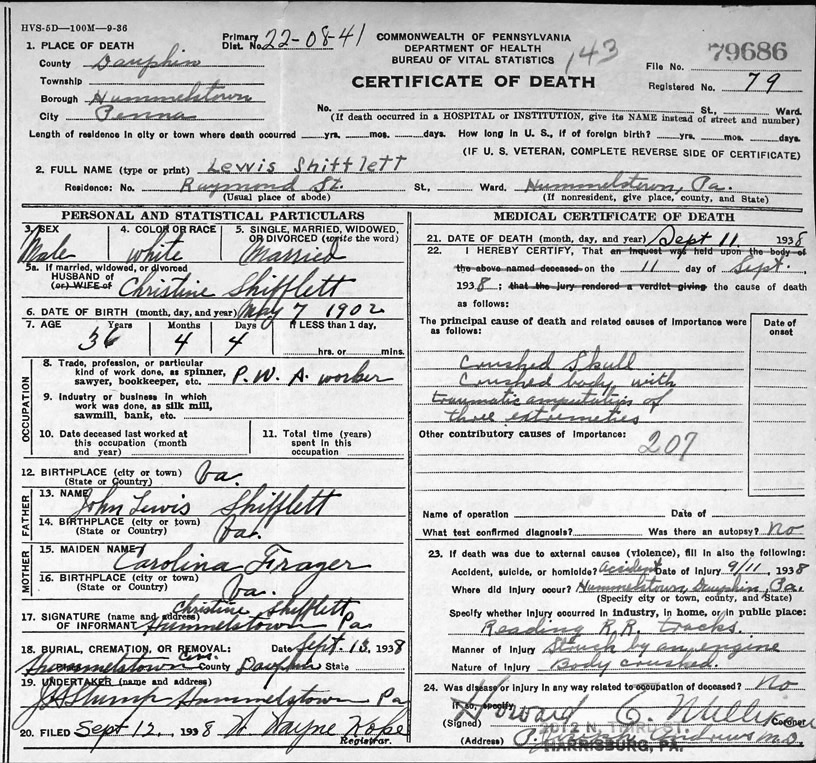 HVS-5D—100M—9-36
Primary Dist. No. 22-08-41
COMMONWEALTH OF PENNSYLVANIA
DEPARTMENT OF HEALTH
BUREAU OF VITAL STATISTICS
143
CERTIFICATE OF DEATH
79686
File No.
Registered No. 79
1. PLACE OF DEATH
County Dauphin
Township
Borough Hummelstown
City Penna
No. St., Ward.
(If death occurred in a HOSPITAL or INSTITUTION, give its NAME instead of street and number)
Length of residence in city or town where death occurred yrs. mos. days. How long in U. S., if of foreign birth? yrs. mos. days.
(IF U. S. VETERAN, COMPLETE REVERSE SIDE OF CERTIFICATE)
2. FULL NAME (type or print) Lewis Shifflett
Residence: No. Raymond St. St., Ward. Hummelstown, Pa.
(Usual place of abode) (If nonresident, give place, county, and State)
PERSONAL AND STATISTICAL PARTICULARS
3. SEX Male
4. COLOR OR RACE white
5. SINGLE, MARRIED, WIDOWED, OR DIVORCED (write the word) Married
5a. If married, widowed, or divorced
HUSBAND of
(or) WIFE of Christine Shifflett
6. DATE OF BIRTH (month, day, and year) May 7 1902
7. AGE Years 36 Months 4 Days 4 If LESS than 1 day, hrs. or mins.
OCCUPATION
8. Trade, profession, or particular kind of work done, as spinner, sawyer, bookkeeper, etc. P. W. A. worker
9. Industry or business in which work was done, as silk mill, sawmill, bank, etc.
10. Date deceased last worked at this occupation (month and year)
11. Total time (years) spent in this occupation
12. BIRTHPLACE (city or town) (State or Country) Va.
FATHER
13. NAME John Lewis Shifflett
14. BIRTHPLACE (city or town) (State or Country) Va.
MOTHER
15. MAIDEN NAME Carolina Frazer
16. BIRTHPLACE (city or town) (State or Country) Va.
17. SIGNATURE (name and address) OF INFORMANT Christine Shifflett
Hummelstown Pa
18. BURIAL, CREMATION, OR REMOVAL: Date Sept. 13, 1938
Hummelstown Cem. County Dauphin State
19. UNDERTAKER (name and address)
Stump Hummelstown Pa
20. FILED Sept 12, 1938 Wayne
Registrar.
MEDICAL CERTIFICATE OF DEATH
21. DATE OF DEATH (month, day, and year) Sept 11, 1938
22. I HEREBY CERTIFY, That an inquest was held upon the body of
the above named deceased on the 11 day of Sept.,
1938; that the jury rendered a verdict giving the cause of death
as follows:
The principal cause of death and related causes of importance were as follows:
Date of onset
Crushed Skull
Crushed body, with
traumatic amputation of
three extremeties
Other contributory causes of importance:
207
Name of operation Date of
What test confirmed diagnosis? Was there an autopsy? No
23. If death was due to external causes (violence), fill in also the following:
Accident, suicide, or homicide? accident Date of injury 9/11, 1938
Where did injury occur? Hummelstown, Dauphin, Pa.
(Specify city or town, county, and State)
Specify whether injury occurred in industry, in home, or in public place:
Reading R. R. tracks.
Manner of injury Struck by an engine
Nature of injury Body crushed.
24. Was disease or injury in any way related to occupation of deceased? No
If so, specify
(Signed) Howard E. Milliken Coroner
(Address) HARRISBURG, PA.
Andrews M.D.